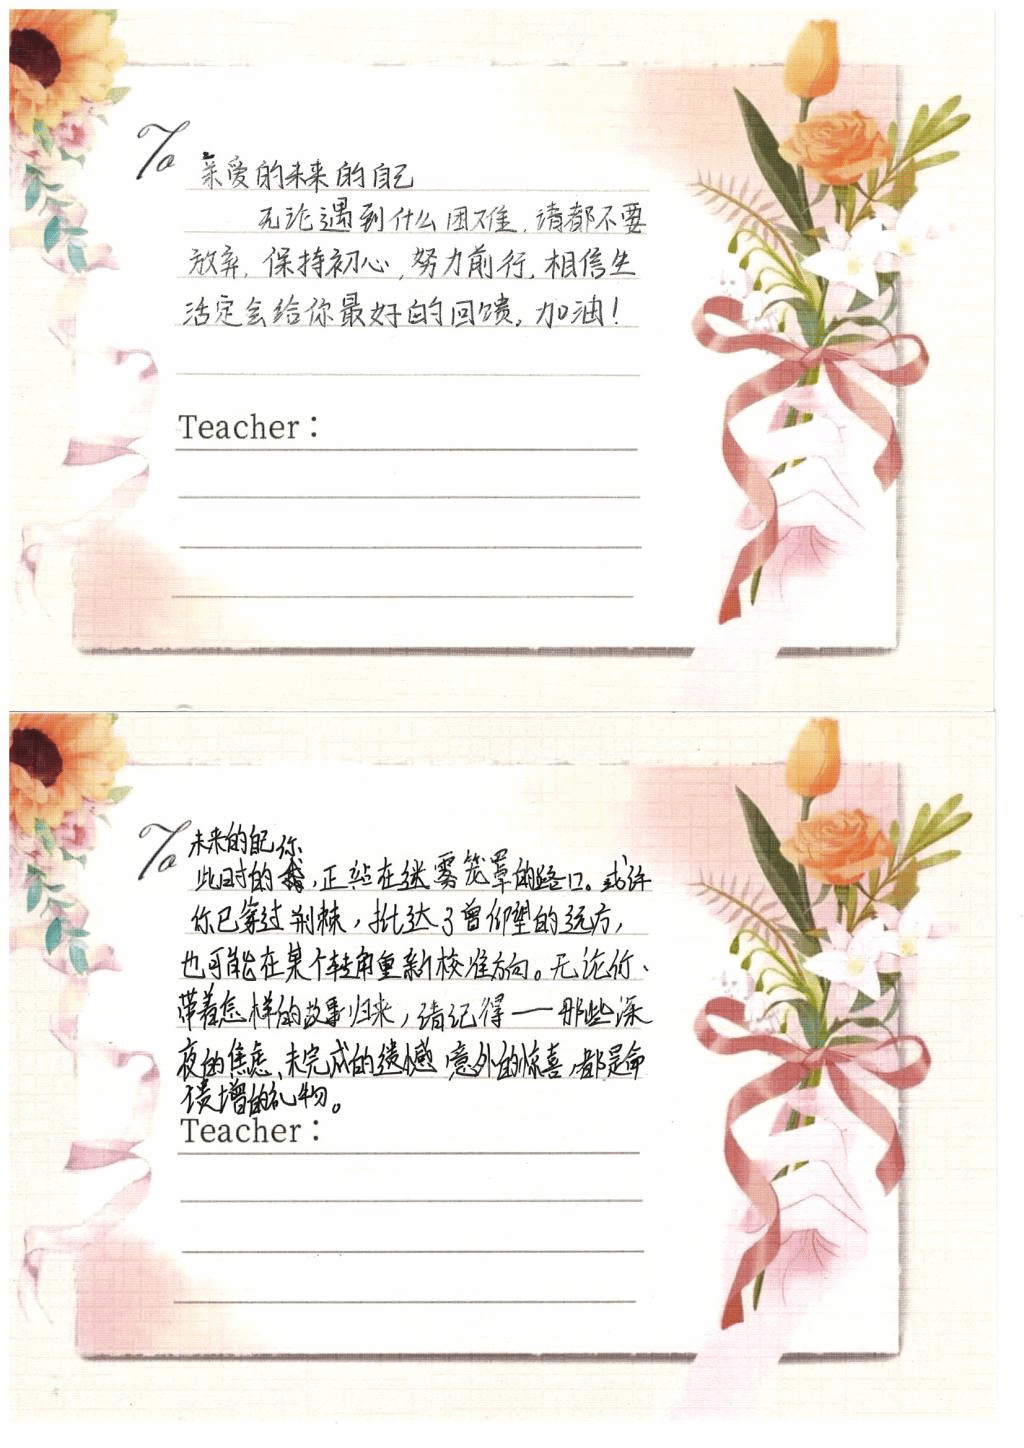 To
亲爱的未来的自己
无论遇到什么困难,请都不要
放弃,保持初心,努力前行,相信生
活定会给你最好的回馈,加油!
Teacher:
To
未来的自己
此时的你,正站在迷雾笼罩的路口。或许
你已穿过荆棘,抵达了曾仰望的远方,
也可能在某个转角重新校准方向。无论你
带着怎样的故事归来,请记得——那些深
夜的焦虑、未完成的遗憾、意外的惊喜,都是命
馈赠的礼物。
Teacher: